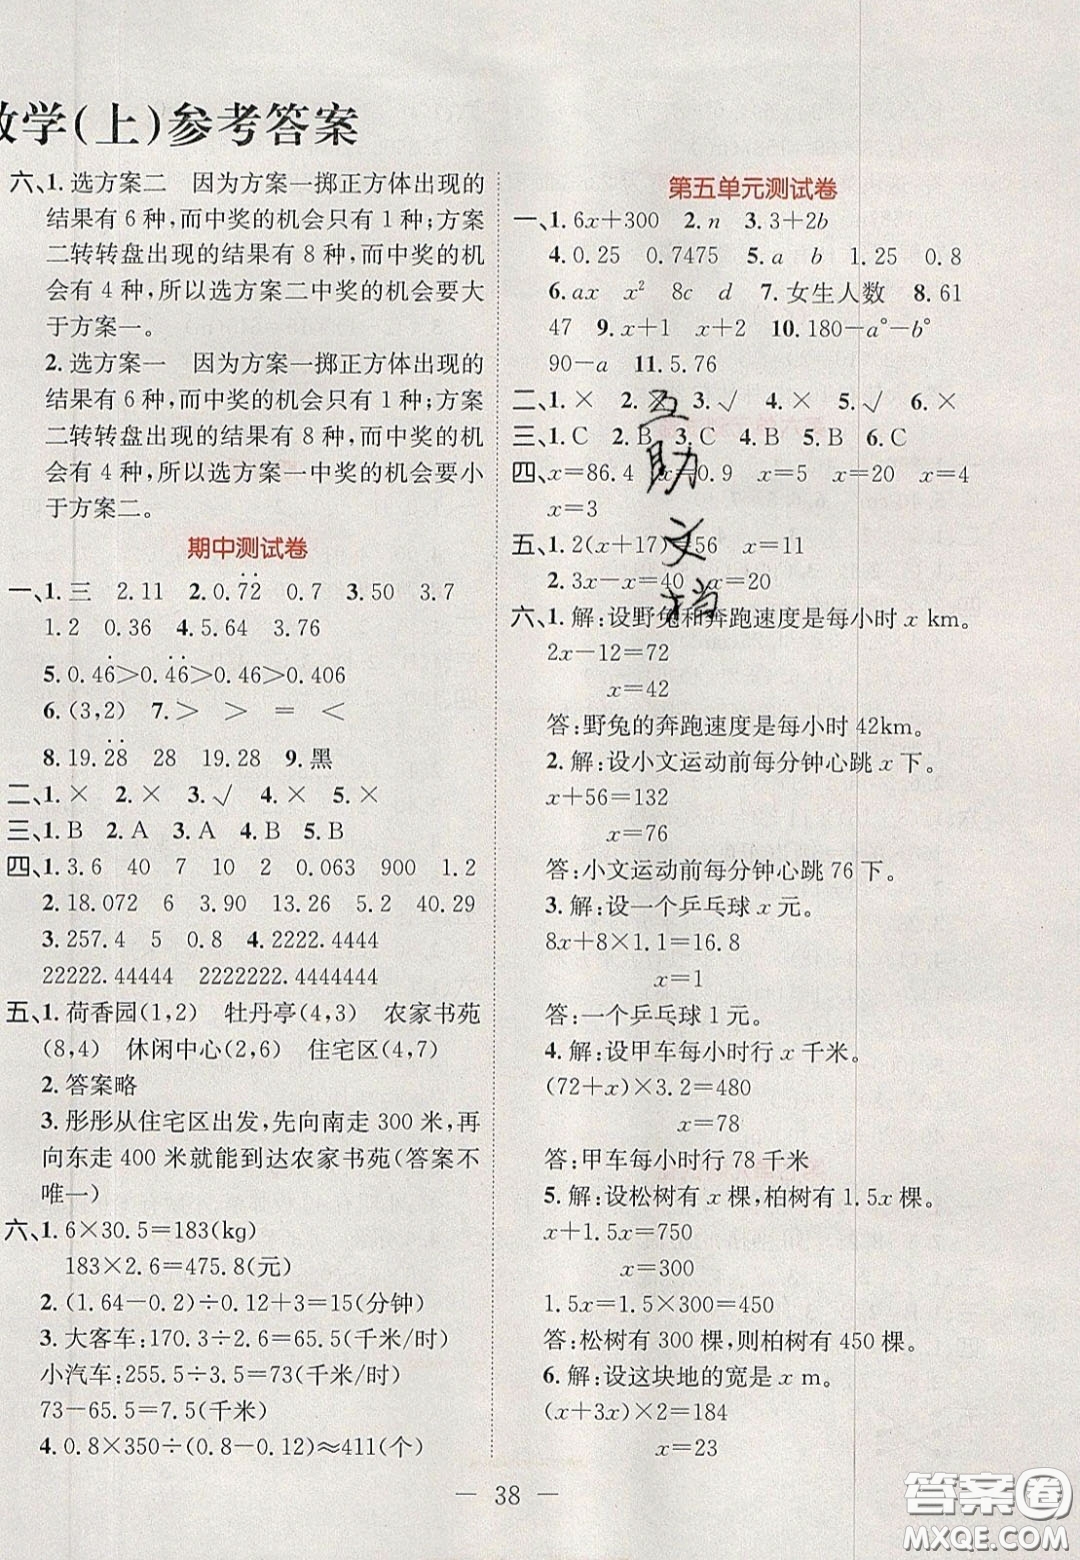 数学(上)参考答案
六、1. 选方案二 因为方案一掷正方体出现的
结果有 6 种,而中奖的机会只有 1 种;方案
二转转盘出现的结果有 8 种,而中奖的机
会有 4 种,所以选方案二中奖的机会要大
于方案一。
2. 选方案一 因为方案一掷正方体出现的
结果有 6 种,而中奖的机会只有 1 种;方案
二转转盘出现的结果有 8 种,而中奖的机
会有 4 种,所以选方案一中奖的机会要小
于方案二。
期中测试卷
一、1. 三 2.11 2. 0.7̇2̇ 0.7 3. 50 3.7
1.2 0.36 4. 5.64 3.76
5. 0.46̇>0.4̇6̇>0.46>0.406
6. (3,2) 7. > > = <
8. 19.2̇8̇ 28 19.28 9. 黑
二、1. × 2. × 3. √ 4. × 5. ×
三、1. B 2. A 3. A 4. B 5. B
四、1. 3.6 40 7 10 2 0.063 900 1.2
2. 18.072 6 3.90 10.26 5.2 40.29
3. 257.4 5 0.8 4. 2222.4444
22222.44444 2222222.4444444
五、1. 荷香园(1,2) 牡丹亭(4,3) 农家书苑
(8,4) 休闲中心(2,6) 住宅区(4,7)
2. 答案略
3. 彤彤从住宅区出发,先向南走 300 米,再
向东走 400 米就能到达农家书苑(答案不
唯一)
六、1. 6×30.5=183(kg)
183×2.6=475.8(元)
2. (1.64-0.2)÷0.12+3=15(分钟)
3. 大客车:170.3÷2.6=65.5(千米/时)
小汽车:255.5÷3.5=73(千米/时)
73-65.5=7.5(千米)
4. 0.8×350÷(0.8-0.12)≈411(个)
第五单元测试卷
一、1. 6x+300 2. n 3. 3+2b
4. 0.25 0.7475 5. a b 1.25 0.8
6. ax x² 8c d 7. 女生人数 8. 61
47 9. x+1 x+2 10. 180-a°-b°
90-a 11. 5.76
二、1. × 2. × 3. √ 4. × 5. √ 6. ×
三、1. C 2. B 3. C 4. B 5. B 6. C
四、x=86.4 x=0.9 x=5 x=20 x=4
x=3
五、1. 2(x+17)=56 x=11
2. 3x-x=40 x=20
六、1. 解:设野兔和奔跑速度是每小时 x km。
2x-12=72
x=42
答:野兔的奔跑速度是每小时 42km。
2. 解:设小文运动前每分钟心跳 x 下。
x+56=132
x=76
答:小文运动前每分钟心跳 76 下。
3. 解:设一个乒乓球 x 元。
8x+8×1.1=16.8
x=1
答:一个乒乓球 1 元。
4. 解:设甲车每小时行 x 千米。
(72+x)×3.2=480
x=78
答:甲车每小时行 78 千米
5. 解:设松树有 x 棵,柏树有 1.5x 棵。
x+1.5x=750
x=300
1.5x=1.5×300=450
答:松树有 300 棵,则柏树有 450 棵。
6. 解:设这块地的宽是 x m。
(x+3x)×2=184
x=23
互助文档
— 38 —
答案圈
MXQE.COM